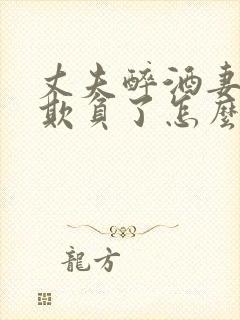 丈夫醉酒妻
欺負了怎麼
龍方